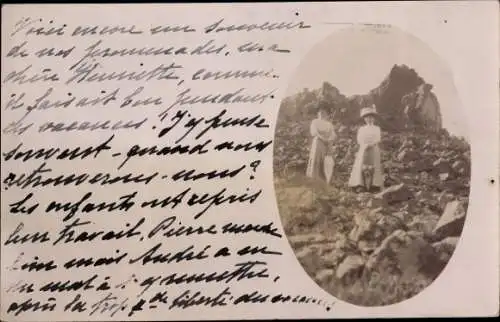 Voici encore un souvenir
de nos promenades, ma
chère Henriette, comme
il faisait bon pendant
ces vacances! J'y pense
souvent - quand nous
retrouverons-nous?
Les enfants ont repris
leur travail, Pierre marche
bien mais André a
du mal à s'y remettre,
après la trop gde liberté des vacances